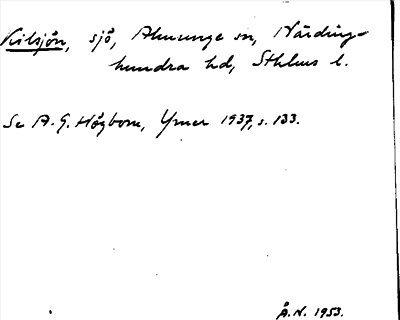 Kilsjön, sjö, Almunge sn, Närding-
hundra hd, Sthlms l.
Se A. G. Högbom, Ymer 1937, s. 133.
Å.N. 1953.